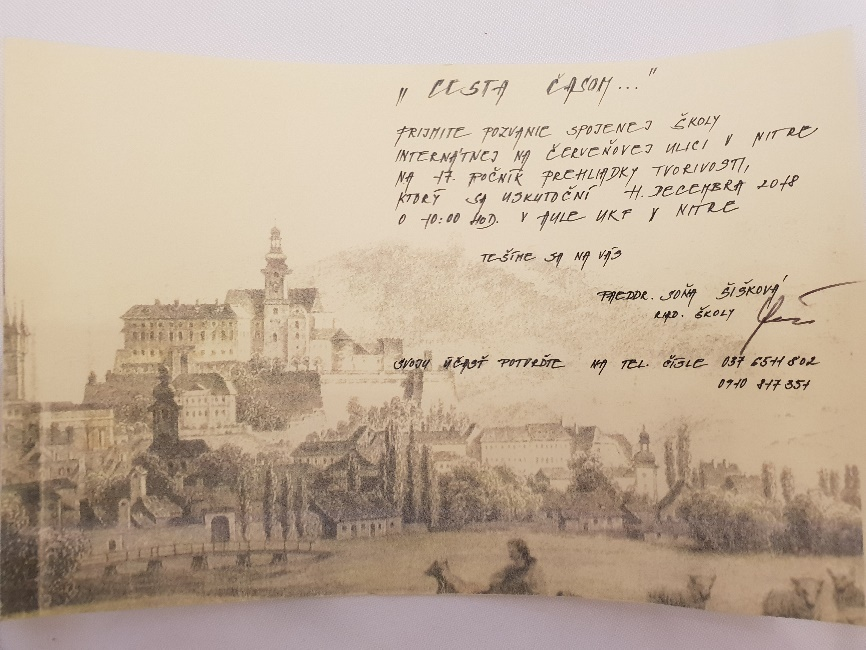 „ CESTA ČASOM..."
PRIJMITE POZVANIE SPOJENEJ ŠKOLY
INTERNÁTNEJ NA ČERVEŇOVEJ ULICI V NITRE
NA 17. ROČNÍK PREHLIADKY TVORIVOSTI,
KTORÝ SA USKUTOČNÍ 11. DECEMBRA 2018
O 10:00 HOD. V AULE UKF V NITRE
TEŠÍME SA NA VÁS
PAEDDR. SOŇA ŠIŠKOVÁ
RIAD. ŠKOLY
SVOJU ÚČASŤ POTVRĎTE NA TEL. ČÍSLE 037 6511 802
0910 817 351